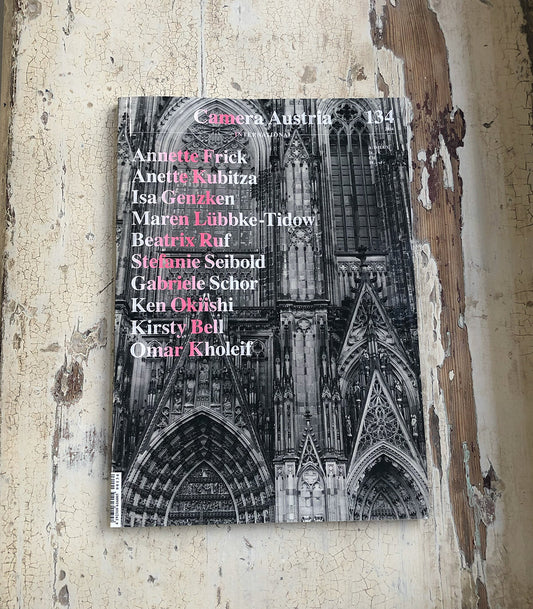 Camera Austria 134
INTERNATIONAL
Annette Frick
Anette Kubitza
Isa Genzken
Maren Lübbke-Tidow
Beatrix Ruf
Stefanie Seibold
Gabriele Schor
Ken Okiishi
Kirsty Bell
Omar Kholeif